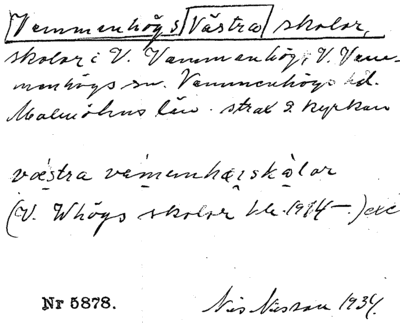 Vemmenhögs Västra skolor,
skolor i V. Vemmenhög, V. Vem-
menhögs sn. Vemmenhögs hd.
Malmöhus län. strax S kyrkan
västra vämenhæ̣iskålor
(V. Whögs skolor bl. 1914–.) exc
Nr 5878. Nils Nessau 1934.